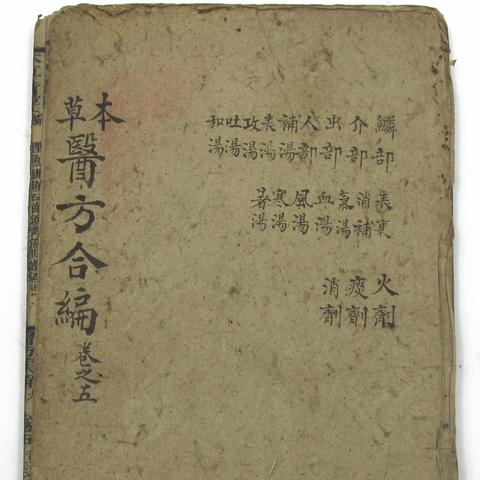 鱗部
介部
虫部
人部
補湯
表湯
攻湯
吐湯
和湯
表裏
消補
氣湯
血湯
風湯
寒湯
暑湯
火劑
痰劑
消劑
本草醫方合編
卷之五
醫方集解